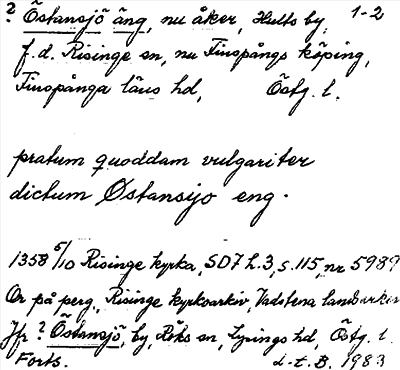 ? Östansjö äng, nu åker, Hults by, 1-2
f.d. Risinge sn, nu Finspångs köping,
Finspånga läns hd, Östg. l.
pratum quoddam vulgariter
dictum Østansijo eng.
1358 5/10 Risinge kyrka, SD7 h.3, s.115, nr 5989
Or på perg., Risinge kyrkoarkiv, Vadstena landsarkiv
Jfr ? Östansjö, by, Röks sn, Lysings hd, Östg. l.
Forts. d-t. B. 1983